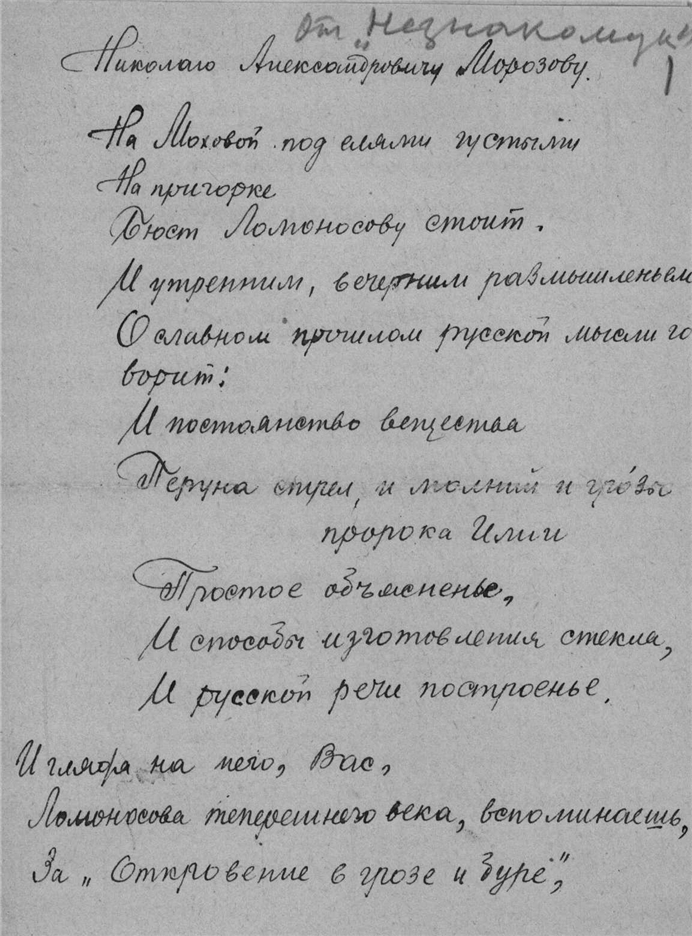 от „Незнакомки"
1
Николаю Александровичу Морозову.
На Моховой под елями густыми
На пригорке
Бюст Ломоносову стоит.
И утренним, вечерним размышленьем
О славном прошлом русской мысли го
ворит:
И постоянство вещества
Перуна стрел, и молний и гро́зы
пророка Илии
Простое объясненье,
И способы изготовления стекла,
И русской речи построенье.
И глядя на него, Вас,
Ломоносова теперешнего века, вспоминаешь,
За „Откровение в грозе и буре",